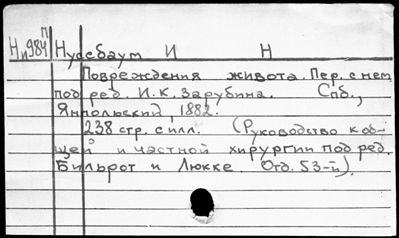 П
Ни984 Нуссбаум И Н
Повреждения живота. Пер. с нем.
под ред. И.К. Зарубина. Спб.,
Янпольский, 1882.
238 стр. с илл. (Руководство к об-
щей и частной хирургии под ред.
Бильрот и Люкке. Отд. 53-й).